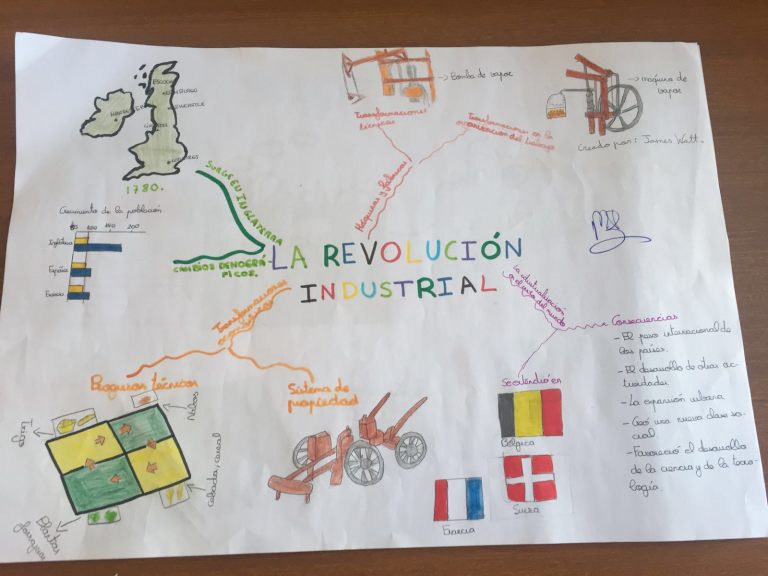 LA REVOLUCIÓN
INDUSTRIAL
SURGE EN INGLATERRA
1780.
CAMBIOS DEMOGRÁ-
FICOS.
Crecimiento de la población
50 100 150 200
Inglaterra
España
Europa
Máquinas y fábricas
Transformaciones
técnicas
Bomba de vapor
Transformaciones en la
organización del trabajo
máquina de
vapor
Creado por: James Watt.
La industrialización
en el resto del mundo
Consecuencias
- El peso internacional de
los países.
- El desarrollo de otras ac-
tividades.
- La expansión urbana
- Creó una nueva clase so-
cial.
- Favoreció el desarrollo
de la ciencia y de la tecno-
logía.
Se extendió en
Bélgica
Suiza
Francia
Transformaciones
Progresos técnicos
Sistema de
propiedad
Trigo
Nabos
Cebada, cereal
Plantas
forrajeras